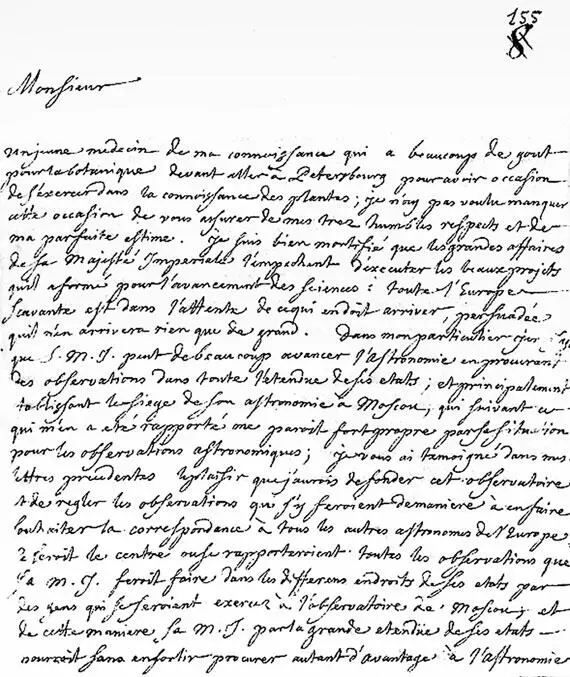 155
8
Monsieur
un jeune medecin de ma connoissance qui a beaucoup de gout
pour la botanique devant aller à Petersbourg pour avoir occasion
de s'exercer dans la connoissance des plantes; je n'ay pas voulu manquer
cette occasion de vous assurer de mes trez humbles respects et de
ma parfaite estime. je suis bien mortifié que les grandes affaires
de sa Majesté Imperiale l'empechent d'executer les beaux projets
qu'il a formé pour l'avancement des sciences: toute l'Europe
scavante est dans l'attente de ce qui en doit arriver, persuadée
qu'il n'en arrivera rien que de grand. Dans mon particulier
que S. M. I. peut de beaucoup avancer l'astronomie en procurant
des observations dans toute l'etendue de ses etats; et principalement
etablissant le siege de son astronomie a Moscou, qui suivant ce
qui m'en a eté rapporté me paroit fort propre par sa situation
pour les observations astronomiques; je vous ai temoigné dans mes
lettres precedentes le plaisir que j'aurois de fonder cet observatoire
et de regler les observations qui s'y feroient de maniere à en faire
la correspondance à tous les autres astronomes de l'Europe
seroit le centre ou se rapporteroient toutes les observations que
sa M. I. feroit faire dans les differens endroits de ses etats par
des gens qui se seroient exercez à l'observatoire de Moscou; et
de cette maniere sa M. I. par la grande etendue de ses etats
pourroit sans en sortir procurer autant d'avantage à l'astronomie